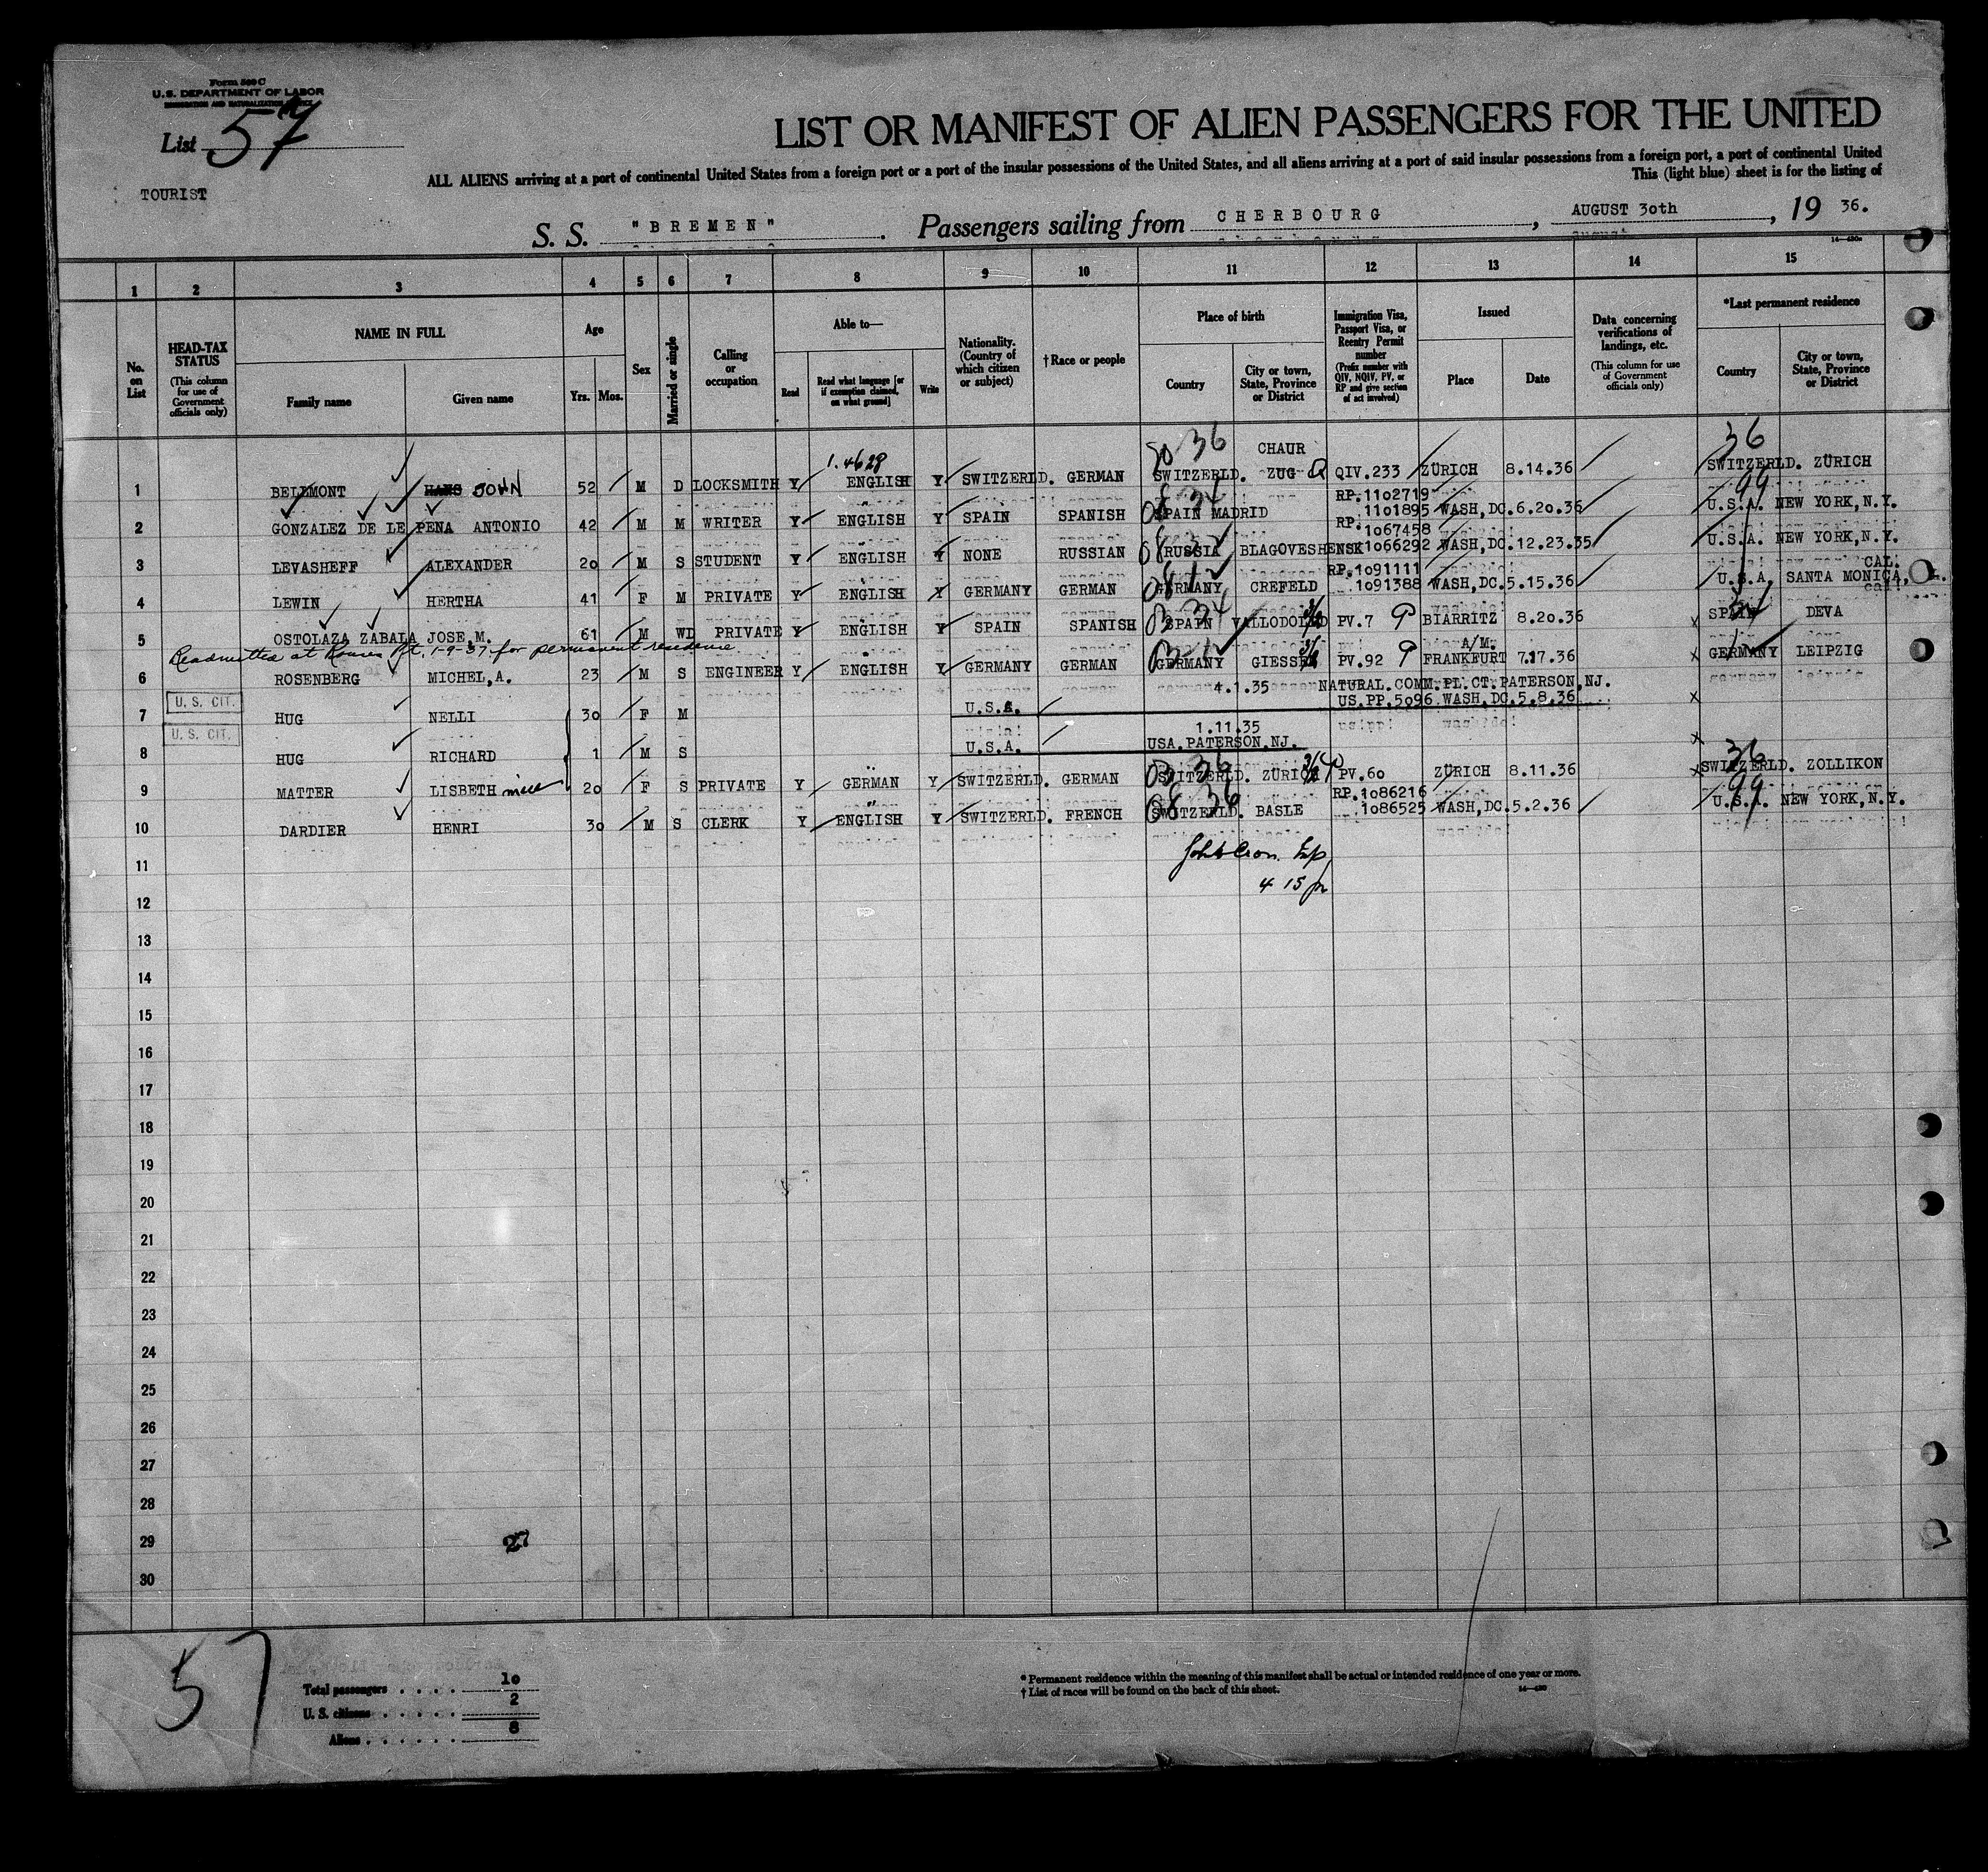 Form 500 C
U.S. DEPARTMENT OF LABOR
IMMIGRATION AND NATURALIZATION SERVICE
List 57
TOURIST
LIST OR MANIFEST OF ALIEN PASSENGERS FOR THE UNITED
ALL ALIENS arriving at a port of continental United States from a foreign port or a port of the insular possessions of the United States, and all aliens arriving at a port of said insular possessions from a foreign port, a port of continental United
This (light blue) sheet is for the listing of
S. S. "BREMEN". Passengers sailing from CHERBOURG, AUGUST 30th, 19 36.
1 2 3 4 5 6 7 8 9 10 11 12 13 14 15
No. on List
HEAD-TAX STATUS (This column for use of Government officials only)
NAME IN FULL
Family name
Given name
Age
Yrs. Mos.
Sex
Married or single
Calling or occupation
Able to—
Read
Read what language [or if exemption claimed, on what ground]
Write
Nationality. (Country of which citizen or subject)
†Race or people
Place of birth
Country
City or town, State, Province or District
Immigration Visa, Passport Visa, or Reentry Permit number (Prefix number with QIV, NQIV, PV, or RP and give section of act involved)
Issued
Place
Date
Data concerning verifications of landings, etc. (This column for use of Government officials only)
*Last permanent residence
Country
City or town, State, Province or District
1.4628 36 CHAUR 36
1 BELLMONT HANS JOHN 52 M D LOCKSMITH Y ENGLISH Y SWITZERLD. GERMAN SWITZERLD. ZUG QIV.233 ZÜRICH 8.14.36 SWITZERLD. ZÜRICH
RP.1102719 99
2 GONZALEZ DE LE PENA ANTONIO 42 M M WRITER Y ENGLISH Y SPAIN SPANISH SPAIN MADRID 1101895 WASH,DC.6.20.36 U.S.A. NEW YORK,N.Y.
RP.1067458
3 LEVASHEFF ALEXANDER 20 M S STUDENT Y ENGLISH Y NONE RUSSIAN RUSSIA BLAGOVESHENSK 1066292 WASH,DC.12.23.35 U.S.A. NEW YORK,N.Y.
RP.1091111 CAL.
4 LEWIN HERTHA 41 F M PRIVATE Y ENGLISH Y GERMANY GERMAN GERMANY CREFELD 1091388 WASH,DC.5.15.36 U.S.A. SANTA MONICA,
5 OSTOLAZA ZABALA JOSE,M. 61 M WD PRIVATE Y ENGLISH Y SPAIN SPANISH SPAIN VALLODOLID PV.7 BIARRITZ 8.20.36 SPAIN DEVA
Readmitted at Rouses Pt. 1-9-37 for permanent residence
A/M.
6 ROSENBERG MICHEL,A. 23 M S ENGINEER Y ENGLISH Y GERMANY GERMAN GERMANY GIESSEN PV.92 FRANKFURT 7.17.36 GERMANY LEIPZIG
4.1.35 NATURAL.COMM.PL.CT.PATERSON,NJ.
U. S. CIT.
7 HUG NELLI 30 F M U.S.A. US.PP.5096 WASH,DC.5.8.36
U. S. CIT.
1.11.35
8 HUG RICHARD 1 M S U.S.A. USA.PATERSON,NJ.
36
9 MATTER LISBETH niece 20 F S PRIVATE Y GERMAN Y SWITZERLD. GERMAN SWITZERLD. ZÜRICH PV.60 ZÜRICH 8.11.36 SWITZERLD. ZOLLIKON
RP.1086216 99
10 DARDIER HENRI 30 M S CLERK Y ENGLISH Y SWITZERLD. FRENCH SWITZERLD. BASLE 1086525 WASH,DC.5.2.36 U.S.A. NEW YORK,N.Y.
11
4 15
12
13
14
15
16
17
18
19
20
21
22
23
24
25
26
27
28
29 27
30
57
Total passengers . . . . 10
U. S. citizens . . . . . 2
Aliens . . . . . . 8
* Permanent residence within the meaning of this manifest shall be actual or intended residence of one year or more.
† List of races will be found on the back of this sheet.